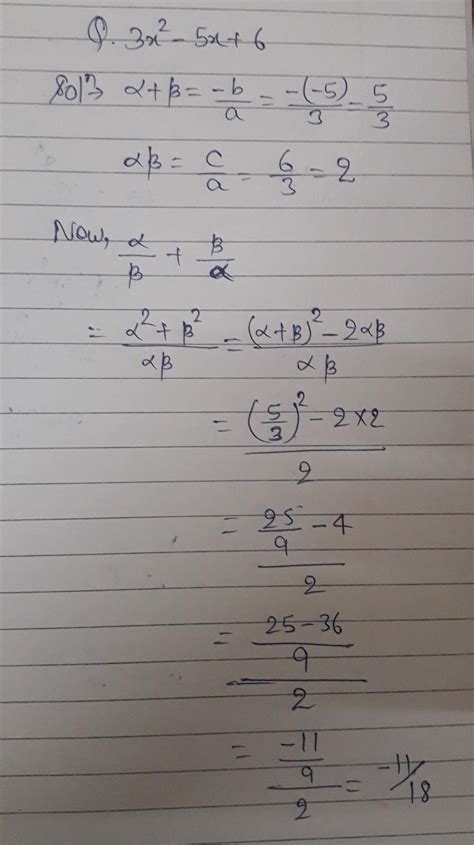 Q. 3x² - 5x + 6
Solⁿ→ α+β = -b/a = -(-5)/3 = 5/3
αβ = c/a = 6/3 = 2
Now, α/β + β/α
= (α² + β²)/αβ = ((α+β)² - 2αβ)/αβ
= ((5/3)² - 2×2)/2
= (25/9 - 4)/2
= ((25-36)/9)/2
= (-11/9)/2 = -11/18